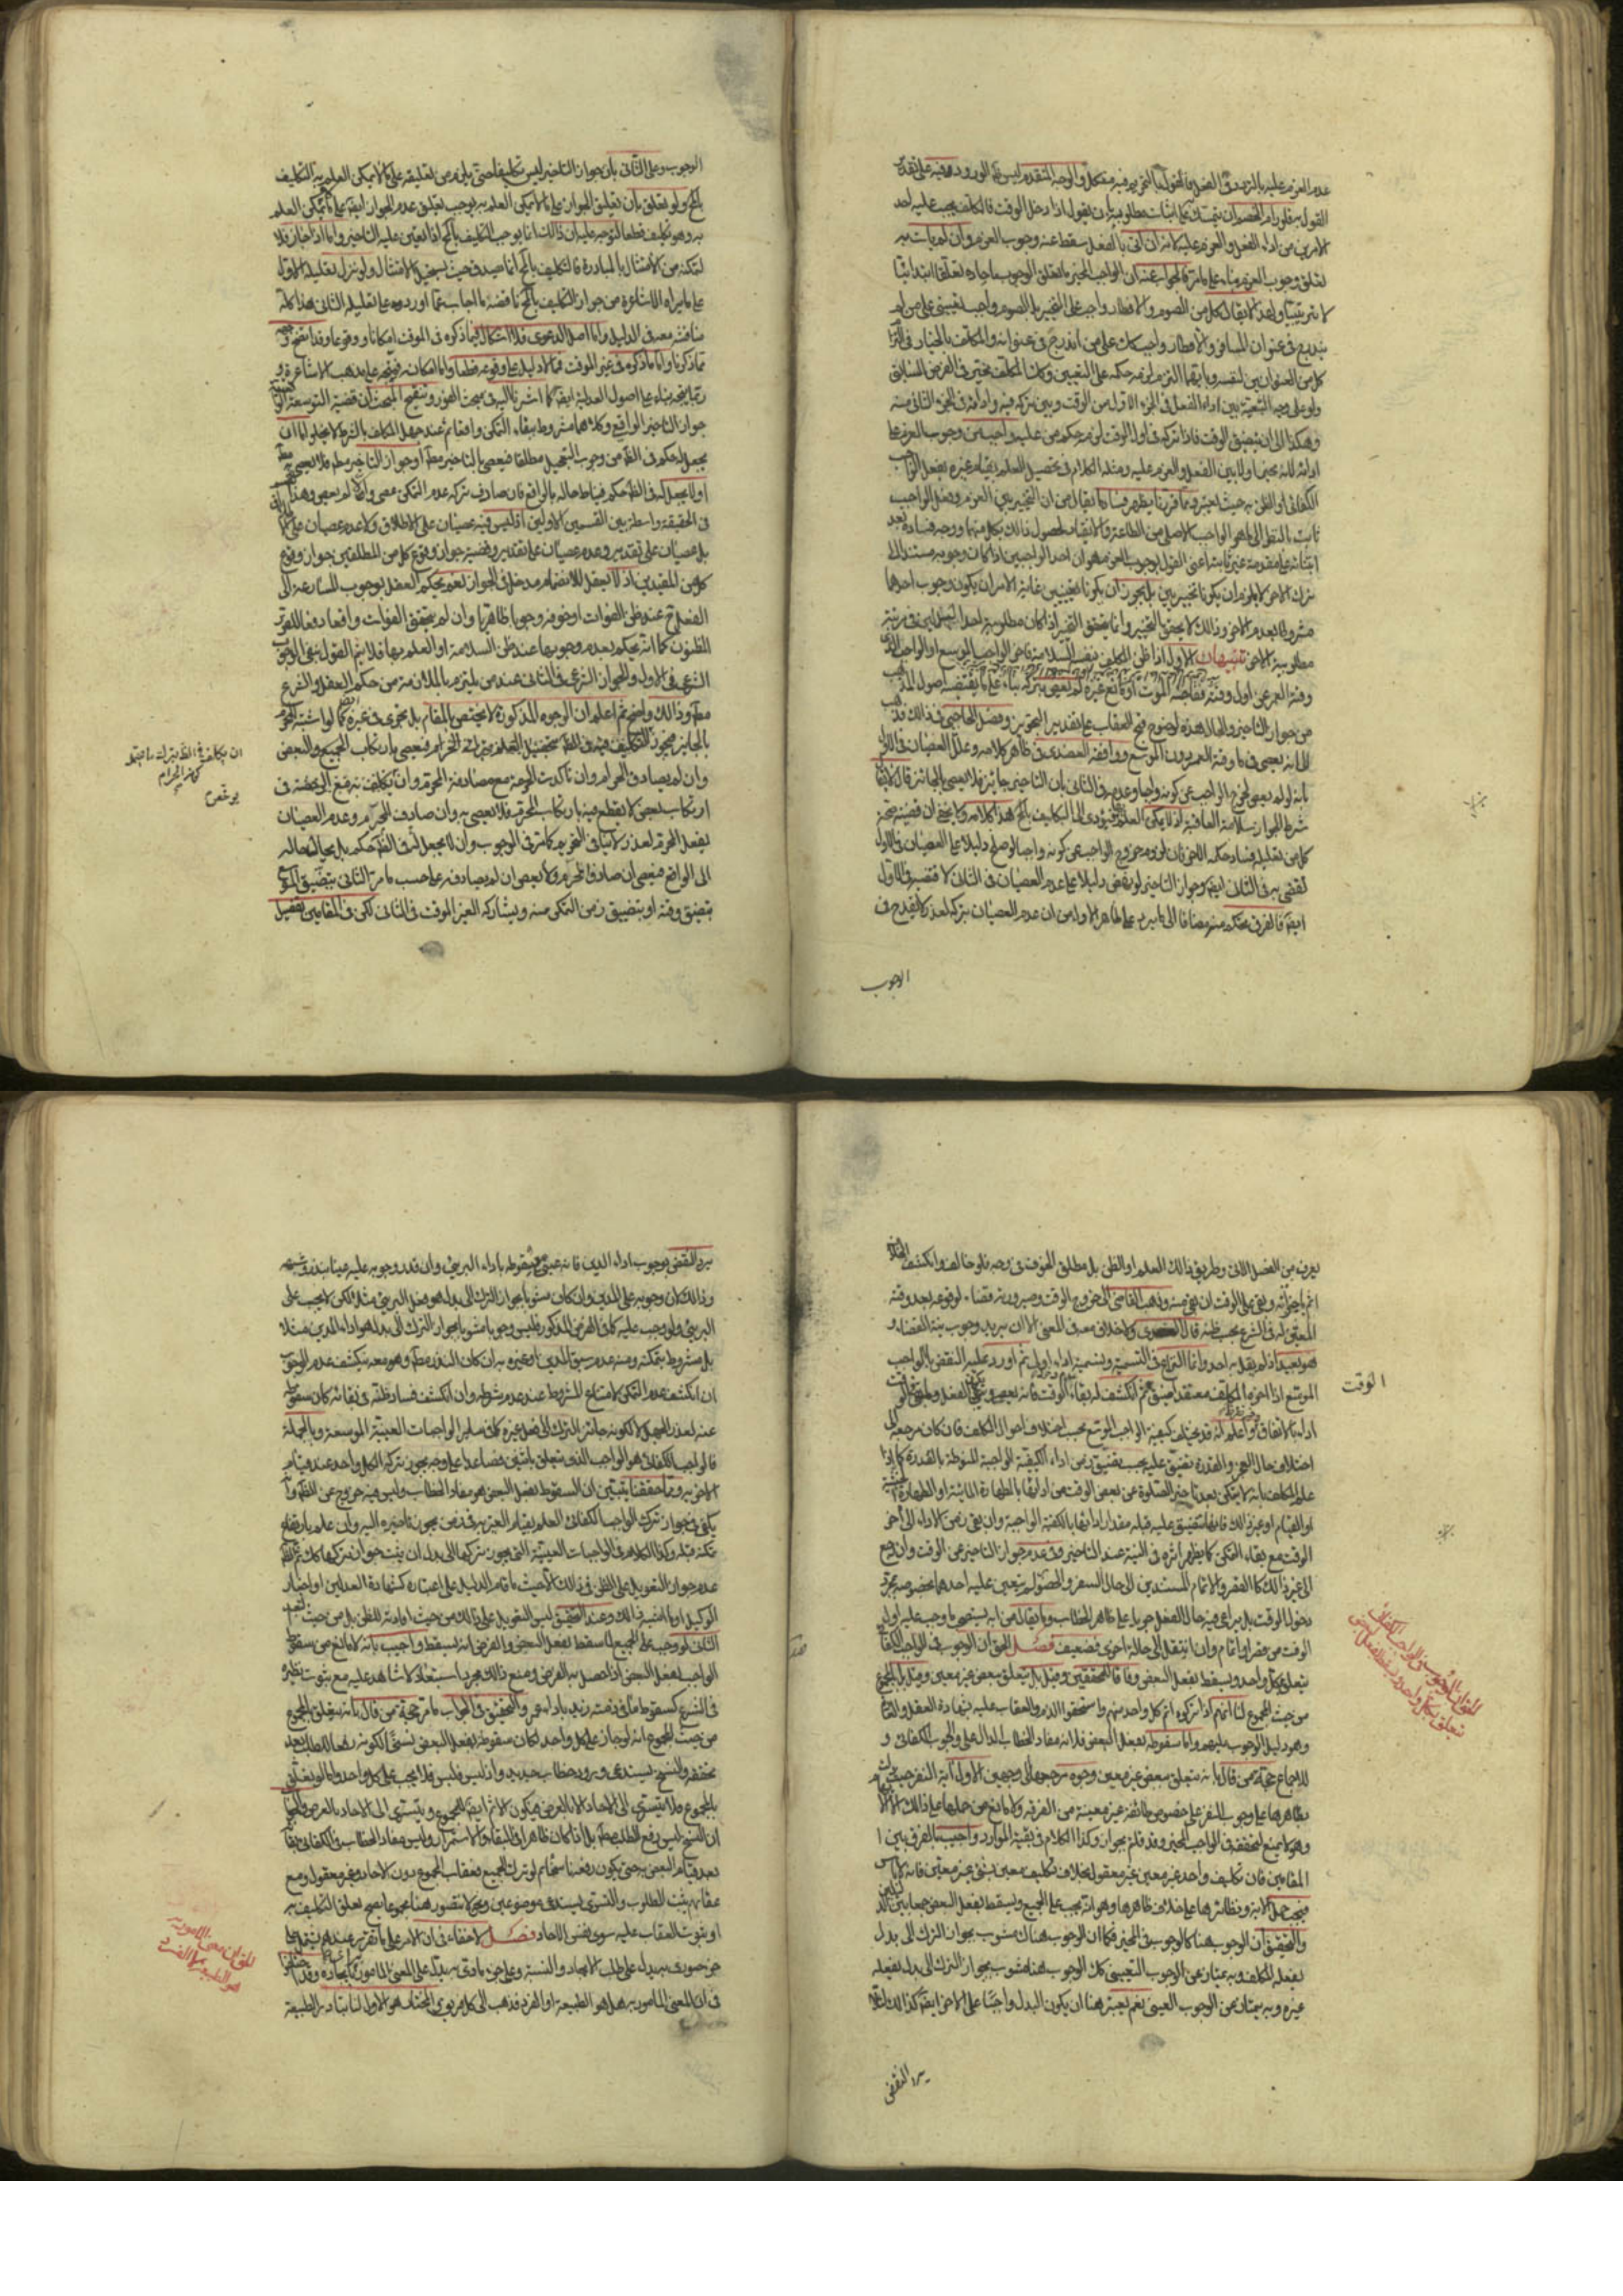 عدم العزم عليه بالتردد في الفعل فالقول بالتحريم فيه مشكل والوجه المتقدم ليس له الورود فيه على تقدير
القول به فلو رام الخصم ان يتمسك على اثبات مطلوبه بان يقول اذا دخل الوقت فالمكلف يجب عليه احد
الامرين من اداء الفعل والعزم عليه لانه ان اتى بالفعل سقط عنه وجوب العزم وان لم يات به
تعلق وجوب العزم بناء على ما مر فالجواب عنه ان الواجب المخير ما تعلق الوجوب باحاده تعلقا ابتدائيا
لا ترتيبيا ولهذا لا يقال كل من الصوم والافطار واجب على التخيير بل الصوم واجب تعييني على من لم
يندرج في عنوان المسافر والافطار واجب كك على من اندرج في عنوانه والمكلف بالخيار في
كل من العنوانين لنفسه وايهما التزم لزمه حكمه على التعيين وكذا المكلف مخير في الفرض السابق
ولو على وجه التبعية بين اداء الفعل في الجزء الاول من الوقت وبين تركه فيه وادائه في الجزء الثاني منه
وهكذا الى ان يتضيق الوقت فاذا تركه في اول الوقت لزمه حكم من عليه واجب من وجوب العزم على
ادائه لا انه مخير اولا بين الفعل والعزم عليه ومثله الكلام في تحصيل العلم بقيام غيره بفعل الواجب
الكفائي او الظن به حيث يعتبر ومما قررنا يظهر فساد ما يقال من ان التخيير بين العزم وفعل الواجب
ثابت بالنظر الى ما هو الواجب الاصلي من الطاعة والانقياد لحصول ذلك بكل منهما ووجه فساده بعد
ابتنائه على مقدمة غير ثابتة اعني القول بوجوب العزم هو ان احد الواجبين اذا كان وجوبه مستندا الى
ترك الاخر لا يلزم ان يكونا تخييريين بل يجوز ان يكونا تعيينيين غاية الامر ان يكون وجوب احدهما
مشروطا بعدم الاخر وذلك لا يحقق التخيير وانما يتحقق التخيير اذا كان مطلوبية احد الفعلين في مرتبة
مطلوبية الاخر تنبيهات الاول اذا ظن المكلف بنفسه السلامة فاخر الواجب الموسع او الواجب الذي
وقته العمر عن اول وقته ففاجئه الموت او مانع غيره لم يعص بتركه بناء على ما يقتضيه اصول المذهب
من جواز التاخير والحال هذه لوضوح قبح العقاب على تقدير التجويز وفصل الحاجبي في ذلك فذهب
الى انه يعصى في ما وقته العمر دون الموسع ووافقه العضدي في ظاهر كلامه وعلل العصيان في الاول
بانه لو لم يعص لخرج الواجب عن كونه واجبا وعدمه في الثاني بان التاخير جائز فلا يعصى بالجائز قال لا يقال
شرط الجواز سلامة العاقبة اذ لا يمكن العلم بها فيؤدي الى التكليف بالمحال هذا كلامه ولا يخفى ان قضية صحة
كل من تعليليه فساد حكمه الاخر فان لزوم خروج الواجب عن كونه واجبا لو صلح دليلا على العصيان في الاول
لقضى به في الثاني ايضا وجواز التاخير لو نهض دليلا على عدم العصيان في الثاني لاقتضى في الاول
ايضا فالفرق تحكم منه مضافا الى ما يرد على الاول من ان عدم العصيان بتركه لعذر لا يقدح في
الوجوب
الوجوب وعلى الثاني بان جواز التاخير ليس تكليفا حتى يلزم من تعليقه على ما لا يمكن العلم به التكليف
بالمحال ولو تعلق بان تعليق الجواز على ما لا يمكن العلم به يوجب تعليق عدم الجواز ايضا على ما لا يمكن العلم
به وهو تكليف قطعا لتوجه عليه ان ذلك انما يوجب التكليف بالمحال اذا تعين عليه التاخير واما اذا جاز فلا
لتمكنه من الامتثال بالمبادرة فالتكليف بالمحال انما يصدق حيث يستحيل الامتثال ولو نزل تعليله الاول
على ما يراه الاشاعرة من جواز التكليف بالمحال ناقضه ما اجاب عما اورده على تعليله الثاني هذا كله
مناقشة معه في الدليل واما اصل الدعوى فلا اشكال فيما ذكره في الموقت امكانا ووقوعا وقد اتضح وجهه
مما ذكرنا واما ما ذكره في غير الموقت فما لا دليل على وقوعه قطعا واما امكانه فيتجه على مذهب الاشاعرة و
ربما يتجه بناء على اصول العدلية ايضا كما اشرنا اليه في مبحث الفور وتنقيح المبحث ان قضية التوسعة
جواز التاخير الواقعي وكلاهما مشروط ببقاء التمكن واقعا ثم عند جهل المكلف بالشرط لا يخلو اما ان
يجعل له حكم في الظاهر من وجوب التعجيل مطلقا فيعصى بالتاخير مطلقا او جواز التاخير مطلقا فلا يعصى
او لا يجعل له في الظاهر حكم فيناط حاله بالواقع فان صادف تركه عدم التمكن عصى والا لم يعص وهذا
في الحقيقة واسطة بين القسمين الاولين اذ ليس فيه عصيان على الاطلاق ولا عدم عصيان
بل عصيان على تقدير وعدم عصيان على تقدير وقضية جواز وقوع كل من المطلقين جواز وقوع
كل من المقيدين اذ لا يعقل للانضمام مدخل في الجواز نعم يحكم العقل بوجوب المسارعة الى
الفعل عند ظن الفوات او خوفه وجوبا ظاهريا وان لم يتحقق الفوات واقعا دفعا للضرر
المظنون كما انه يحكم بعدم وجوبها عند ظن السلامة او العلم بها فلا يتم القول بنفي الوجوب
الشرعي في الاول والجواز الشرعي في الثاني عند من يلتزم بالملازمة من حكم العقل والشرع
مطلقا وذلك واضح ثم اعلم ان الوجوه المذكورة لا يختص بالمقام بل تجري في غيره كما لو اشتبه الحرام
بالجائز فيجوز التكليف فيه في الظاهر بتحصيل العلم بترك الحرام فيعصى بارتكاب الجميع والبعض
وان لم يصادف الحرام وان تاكدت الحرمة مع مصادفة المحرم وان يكلف برفع الى يقينه في
ارتكاب بعض لا يقطع فيه بارتكاب المحرم فلا يعصى به وان صادف المحرم وعدم العصيان
بفعل المحرم لعذر لا ينافي التحريم كما مر في الوجوب وان لا يجعل له في الظاهر حكم بل يحال حاله
الى الواقع فيعصى ان صادف المحرم ولا يعصى ان لم يصادفه على حسب ما مر الثاني يتضيق الموسع
بتضيق وقته او بتضيق زمن التمكن منه ويشاركه الغير الموقت في الثاني لكن في المقامين تفصيل
ان يكلف في الظاهر بترك ما يحتمل
كونه الحرام
يعرف من الفصل الاتي وطريق ذلك العلم او الظن بل مطلق الخوف في وجه فلو خالف وانكشف الخلاف
اثم بتاخيره وبقي على الوقت ان بقي منه وذهب القاضي الى خروج الوقت وصيرورته قضاء لوقوعه بعد وقته
المعين له في الشرع بحسب ظنه قال العضدي ولا خلاف معه في المعنى الا ان يريد وجوب نية القضاء و
هو بعيد اذ لم يقل به احد وانما النزاع في التسمية وتسميته اداء اولى ثم اورد عليه النقض بالواجب
الموسع اذا اخره المكلف معتقدا ضيق الوقت ثم انكشف له بقاء الوقت فانه يعصى
الوقت
اداء بالاتفاق واعلم انه قد يختلف كيفية الواجب الموسع بحسب اختلاف احوال المكلف فان كان مرجعه الى
اختلاف حال العجز والقدرة تضيق عليه بحسب تضيق زمن اداء الكيفية الواجبة المنوطة بالقدرة كما اذا
علم المكلف بانه لا يتمكن بعد تاخير الصلوة عن بعض الوقت من ادائها بالطهارة المائية او الطهارة
او القيام او غير ذلك فانها تتضيق عليه قبله مقدار ادائها بالكيفية الواجبة وان بقي زمن الاداء الى اخر
الوقت مع بقاء التمكن كما يظهر اثره في النية عند التاخير وفي عدم جواز التاخير عن الوقت وان رجع
الى غير ذلك كالقصر والاتمام المستندين الى حالي السفر والحضر لم يتعين عليه احدهما بخصوصه بمجرد
دخول الوقت بل يراعى فيه حال الفعل جريا على ظاهر الخطاب وما يقال من انه يستصحب ما وجب عليه اول
الوقت من قصر او اتمام وان انتقل الى حالة اخرى فضعيف فصل الحق ان الوجوب في الواجب الكفائي
يتعلق بكل واحد ويسقط بفعل البعض وفاقا للمحققين وقيل بل يتعلق ببعض غير معين وقيل بل بالمجموع
من حيث المجموع لنا انهم اذا تركوه اثم كل واحد منهم واستحقوا الذم والعقاب عليه بشهادة العقل والشرع
وهو دليل الوجوب عليهم واما سقوطه بفعل البعض فلانه مفاد الخطاب الدال على وجوب الكفائي و
للاجماع حجة من قال بانه يتعلق ببعض غير معين وجوه مرجعها الى وجهين الاول آية النفر حيث
بظاهرها على وجوب النفر على خصوص طائفة غير معينة من الفرقة ولا مانع من حملها على ذلك
وهو لا يمنع لتحققه في الواجب المخير وقد قلتم بجوازه وكذا الكلام في بقية الموارد واجيب بالفرق بين
المقامين فان تكليف واحد غير معين غير معقول بخلاف تكليف معين بشيء غير معين فانه لا باس
فيجب حمل الاية ونظائرها على خلاف ظاهرها وهو انه يجب على الجميع ويسقط بفعل البعض جمعا بين
والتحقيق ان الوجوب هنا كالوجوب في المخير فكما ان الوجوب هناك مشوب بجواز الترك الى بدل
يفعله المكلف وبه يمتاز عن الوجوب التعييني كك الوجوب هنا مشوب بجواز الترك الى بدل يفعله
غيره وبه يمتاز عن الوجوب العيني نعم يعتبر هنا ان يكون البدل واجبا على الاخر ايضا
يرد النقض
يرد النقض بوجوب اداء الدين فانه عيني مع سقوطه باداء البريء وان قدر وجوبه عليه عينا بنذر وشبهه
وذلك لان وجوبه على المدين وان كان مشوبا بجواز الترك الى بدل هو فعل البريء مثلا لكن لا يجب على
البريء ولو وجب عليه كما في الفرض المذكور فليس وجوبا مشوبا بجواز الترك الى بدل هو اداء المدين مثلا
بل مشروط بتمكنه ومنه عدم سبق المدين او غيره به ان كان النذر مطلقا وهو معه يكشف عدم الوجوب
ان انكشف عدم التمكن لامتناع المشروط عند عدم شرطه وان انكشف فساد ظنه في بقائه كان سقوطه
عنه لعذر الجهل لا لكونه جائز الترك الى فعل غيره كما في ساير الواجبات العينية الموسعة وبالجملة
فالواجب الكفائي هو الواجب الذي يتعلق باثنين فصاعدا على وجه يجوز تركه لكل واحد عند قيام
الاخر به ومما حققنا يتبين ان السقوط بفعل البعض هو مفاد الخطاب وليس فيه خروج عن الظاهر
يكفي في جواز ترك الواجب الكفائي العلم بقيام الغير به في زمن يجوز تاخيره اليه وان علم بارتفاع
تمكنه قبله وكذا الكلام في الواجبات العينية التي يجوز تركها الى بدل
عدم جواز التعويل على الظن في ذلك الا حيث ما قام الدليل على اعتباره كشهادة العدلين او اخبار
الوكيل او ما اشبه ذلك وعند التحقيق ليس التعويل على ذلك من حيث افادته للظن بل من حيث
الثاني لو وجب على الجميع لما سقط بفعل البعض والفرض انه يسقط واجيب بانه لا مانع من سقوط
الواجب بفعل البعض اذا حصل به الغرض ومنع ذلك مجرد استبعاد لا شاهد عليه مع ثبوت نظيره
في الشرع كسقوط ما في ذمة زيد باداء عمرو والتحقيق في الجواب ما مر حجة من قال بانه يتعلق بالمجموع
من حيث المجموع انه لو جاز على كل واحد لكان سقوطه بفعل البعض نسخا لكونه رفعا للطلب بعد
تحققه والنسخ يستدعي ورود خطاب جديد واذ ليس فليس فلا يجب على كل واحد واما لو تعلق
بالمجموع فلا يتسري الى الاحاد الا بالعرض فيكون الاثم ايضا للمجموع ويتسرى الى الاحاد بالعرض والجواب
ان النسخ ليس رفع الطلب مطلقا بل اذا كان ظاهرا في البقاء والاستمرار وليس مفاد الخطاب في الكفائي بقاء
بعد قيام البعض به حتى يكون رفعه نسخا ثم لو ترك الجميع فعقاب المجموع دون الاحاد غير معقول ومع
عقابهم يثبت المطلوب والتسري يستدعي موضوعين ونحن لا نتصور هنا مجموعا يصح تعلق التكليف به
او بثبوت العقاب عليه سوى نفس الاحاد فصل لا خفاء في ان الامر على ما تقرر عندهم يشتمل على
جزء صوري يدل على طلب الايجاد والنسبة وعلى جزء مادي يدل على المعنى المامور بايجاده وقد اختلفوا
في ان المعنى المامور به هل هو الطبيعة او الفرد فذهب الى كل فريق والمختار هو الاول لنا تبادر الطبيعة